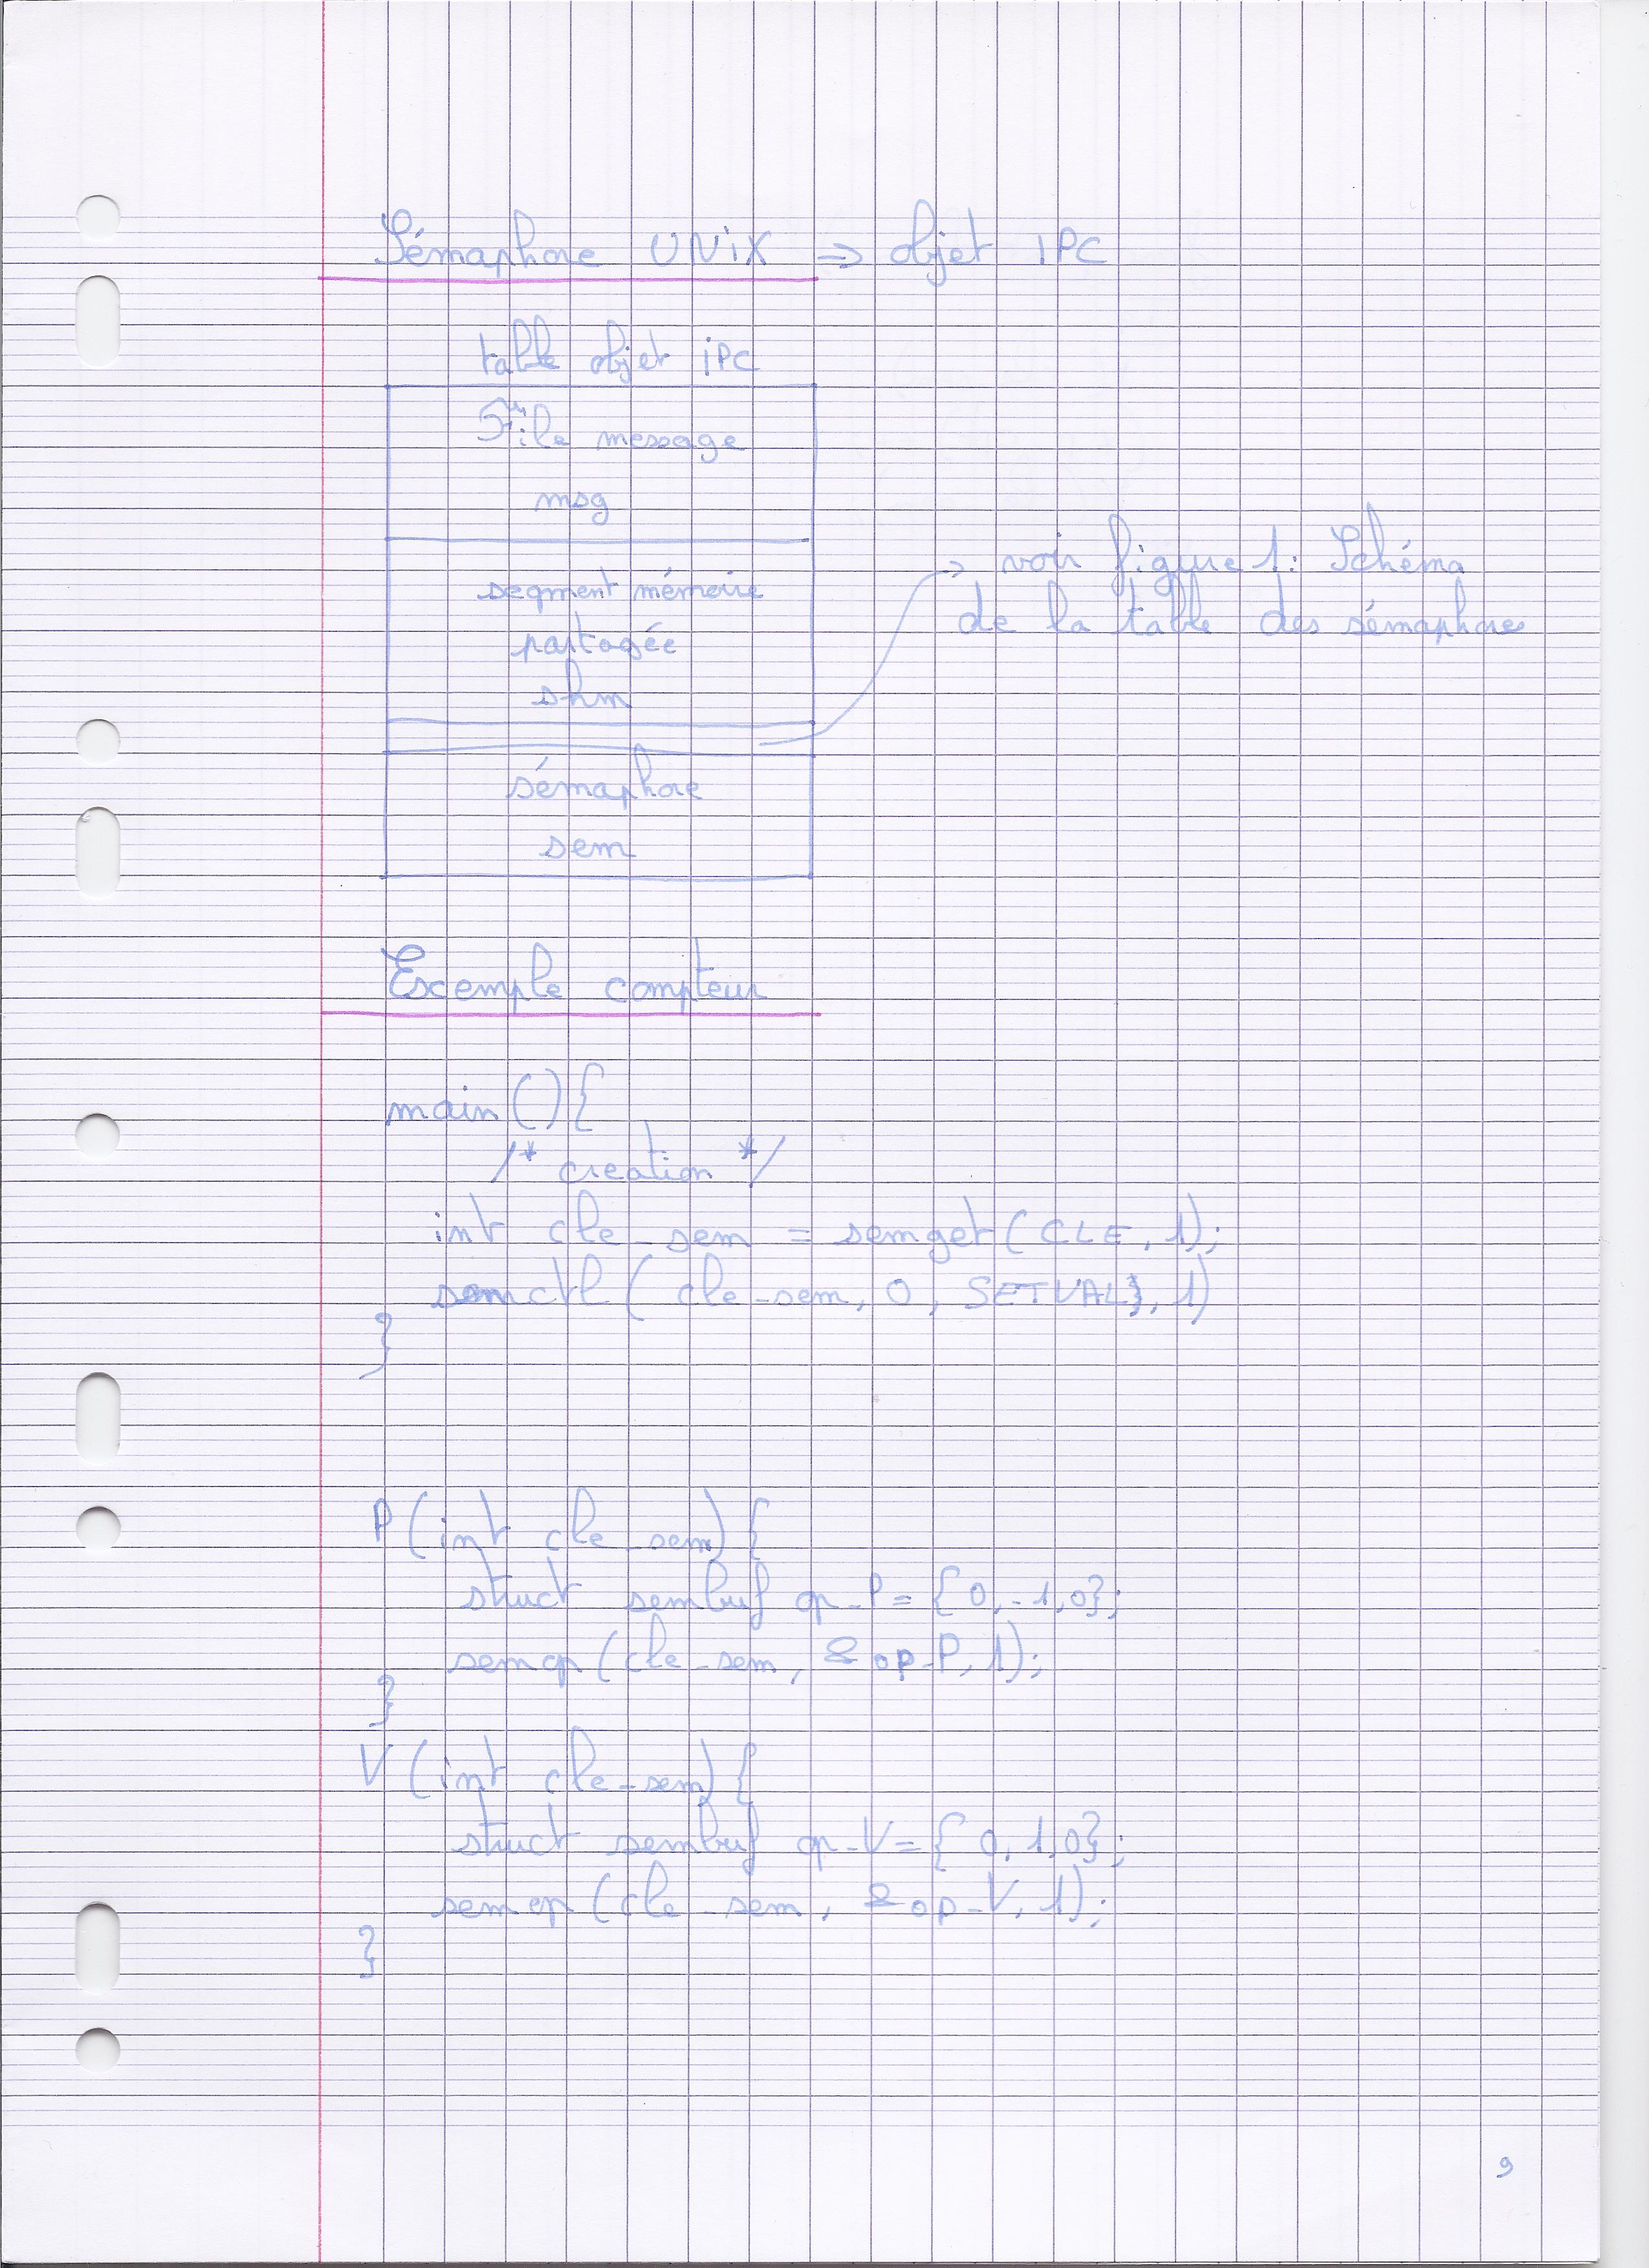 Sémaphore UNiX => objet IPC
table objet iPC
File message
msg
segment mémoire
partagée
shm
-> voir figure 1: Schéma
de la table des sémaphores
sémaphore
sem
Exemple compteur
main(){
/* creation */
int cle_sem = semget(CLE, 1);
semctl(cle_sem, 0, SETVAL, 1)
}
P(int cle_sem){
struct sembuf op_P = {0,-1,0};
semop(cle_sem, &op_P, 1);
}
V(int cle_sem){
struct sembuf op_V = {0,1,0};
semop(cle_sem, &op_V, 1);
}
9